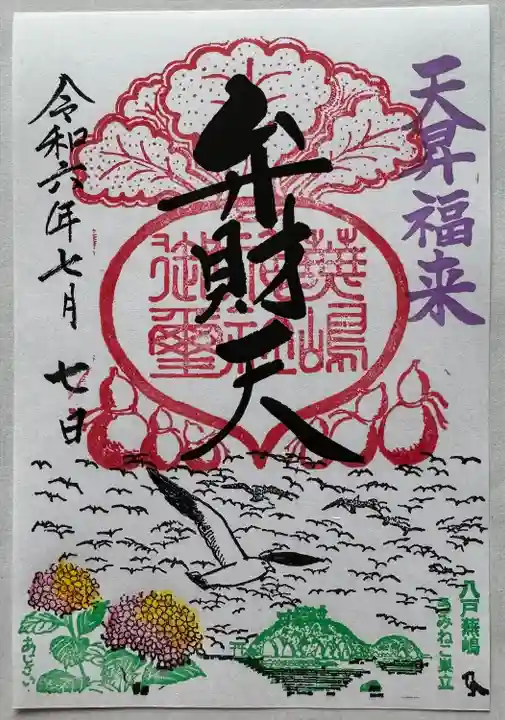 天昇福来
弁財天
蕪嶋
神社
御璽
令和六年七月 七日
八戸蕪嶋
うみねこ巣立
あじさい